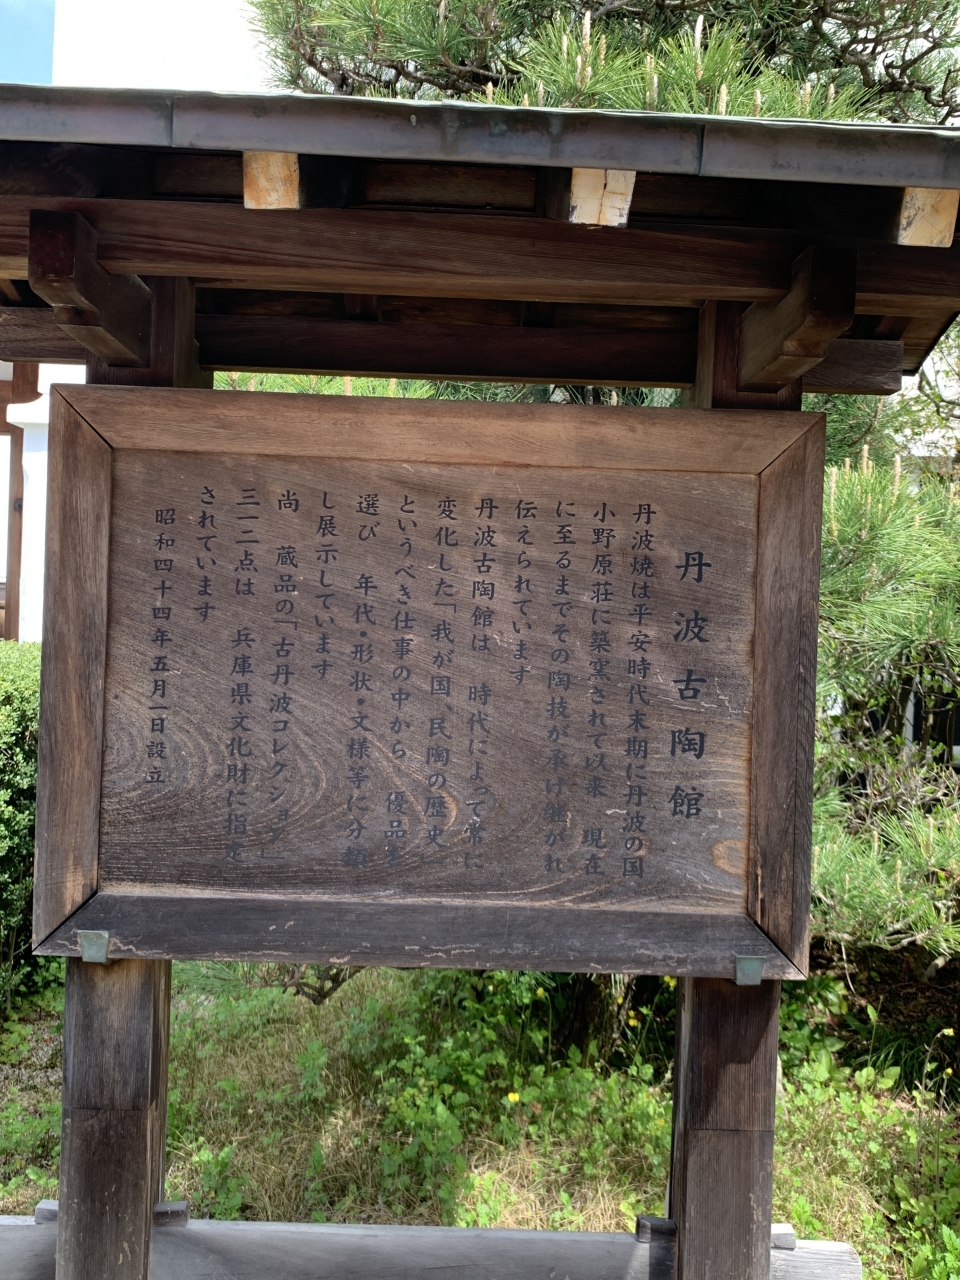 丹波古陶館
丹波焼は平安時代末期に丹波の国
小野原荘に築窯されて以来　現在
に至るまでその陶技が承け継がれ
伝えられています
丹波古陶館は　時代によって常に
変化した「我が国、民陶の歴史
というべき仕事の中から、優品を
選び　年代・形状・文様等に分類
し展示しています
尚　蔵品の「古丹波コレクション」
三一二点は　兵庫県文化財に指定
されています
昭和四十四年五月一日設立